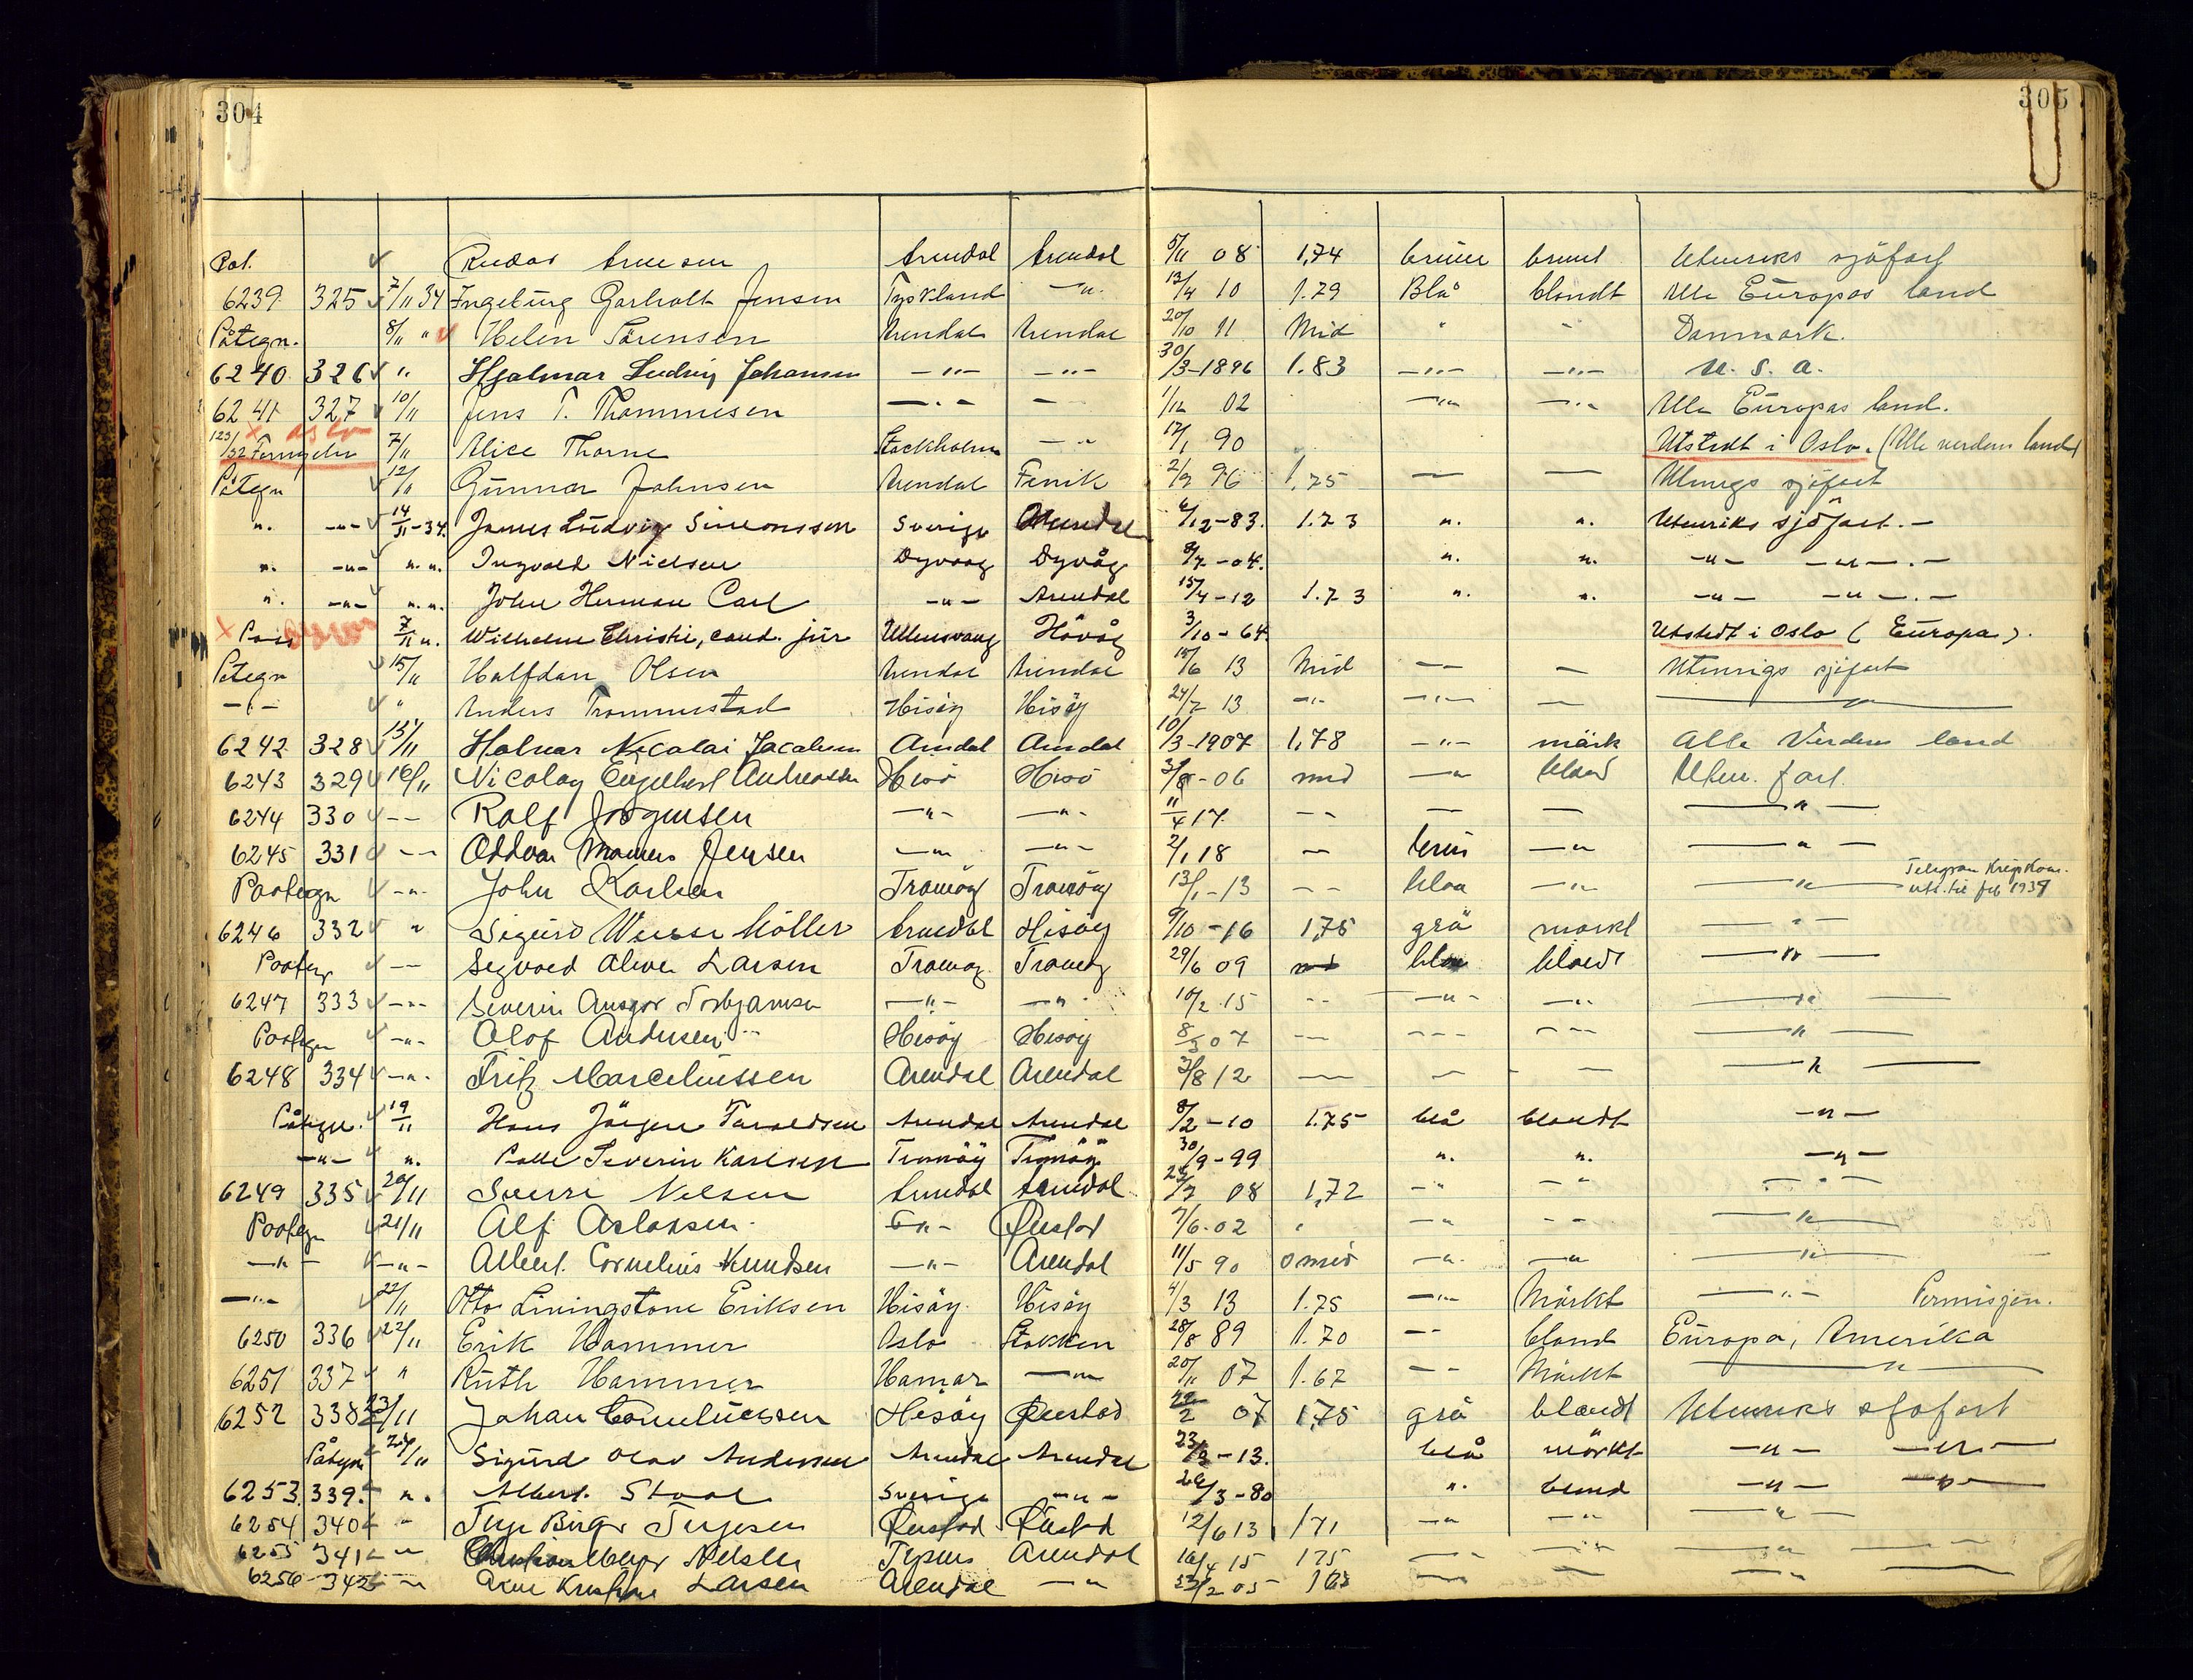 304 305
Pat. Reidar Arnesen Arendal Arendal 5/11 08 1,74 brune brunt Utenriks sjöfart
6239 325 7/11 34 Ingeburg Garholt Jensen Tyskland -"- 13/4 10 1.79 Blå blondt Alle Europas land
Påtegn. 8/11 " Helen Sörensen Arendal Arendal 20/10 11 Mid " - Danmark.
6240 326 " Hjalmar Ludvig Johansen -"- -"- 30/3-1896 1.83 -"- -"- U. S. A.
6241 327 10/11 Jens T. Thommesen -"- - 1/12 02 -"- -"- Alle Europas land.
x Oslo
123/32 Fornyelse 7/11 Alice Thorne Stockholm -"- 17/1 90 Utstedt i Oslo. (Alle verdens land)
Påtegn 12/11 Gunnar Johnsen Arendal Fevik 2/9 96 1,75 - - Utenrigs sjöfart
". -"- 14/11-34. James Ludvig Simonssen Sverige Arendal 6/12-83. 1.73 ". ". Utenriks sjöfart.-
". -"- ". ". Ingvald Nielsen Dyvaag Dyvåg 8/7-04. ". ". -"- -"-.-
". -"- ". ". John Herman Carl -"- Arendal 15/4-12 1.73 ". ". -"- -"-.-
x Pass 7/11 ". Wilhelm Christie, cand. jur Ullensvang Hövåg 3/10-64. Utstedt i Oslo (Europa).
Påtegn 15/11 Halfdan Olsen Arendal Arendal 15/6 13 Mid -- - Utenrigs sjöfart
-"- " Anders Trommestad Hisöy Hisöy 24/7 13 -"- -"- - -"-
6242 328 15/11 Halvar Nicolai Jacobsen Arndal Arndal 10/3-1907 1,78 -"- mörk Alle Verdens land
6243 329 16/11 Nicolay Engelbert Andreassen Hisö Hisö 3/8-06 mid -"- blond Uten. fart.
6244 330 -- Rolf Jörgensen -"- -"- 11/4 17. -- - - -"-
6245 331 -- Oddvar Jensen -"- -"- 2/1 18 - brun -"- -"-
Paategn -"- John Karlsen Tromöy Tromöy 13/1-13 -- blaa -"- -"- Telegram
utst. til feb 1937
6246 332 " Sigurd Möller Arendal Hisöy 9/10-16 1,75 grå mörkt -"-
Paategn -- Sigvald Larsen Tromöy Tromöy 29/6 09 mid blaa blondt -"-
6247 333 -"- Severin Ansgar Torbjörnsen -"- -"- 10/2.15 -- -"- -"- -"-
Paategn -"- Olof Andersen -"- Hisöy Hisöy 8/3 07 -- --- --- -"-
6248 334 -"- Fritz Marceliussen Arendal Arendal 3/8 12 - - - -"-
Påtegn. 19/11 Hans Jörgen Taraldsen Arendal Arendal 8/2-10 1.75 blå blondt -"-
-"- ". Palle Severin Karlsen Tromöy Tromöy 30/9-99 ". ". -"-
6249 335 20/11 Sverre Nelsen Arendal Arendal 08 1,72 -"- -"- -"-
Paategn 21/11 Alf Aslaksen -"- Öiestad 7/6.02 -"- -- -"-
-"- -"- Albert Cornelius Knudsen -"- Arendal 11/5 90 o mid -"- -"- -"-
-"- 22/11 Otto Livingstone Eriksen Hisöy Hisöy 4/3 13 1.75 -"- Mörkt -"- Permisjon.
6250 336 22/11 Erik Hammer Oslo Stokken 28/8 89 1.70 -- blond Europa, Amerika
6251 337 " Ruth Hammer Hamar -"- 20/11 07 1.67 -- Mörkt -"-
6252 338 23/11 Johan Corneliussen Hisöy Öiestad 07 1,75 grå blondt Utenriks sjöfart
Påtegn 24/11 Sigurd Olav Andersen Arendal Arendal -13. blå mörkt -"- -"-
6253. 339. ". Albert Sverige -"- 26/3-80 ". blond -"- -"-
6254 340 " Terje Birger Terjesen Öiestad Öiestad 12/6 13 171 -"- -"- -"-
6255 341 -"- Nilsen Arendal 16/4 15 175 -"- - -"-
6256 342 -"- Larsen Arendal -"- 23/2 05 - - -"-